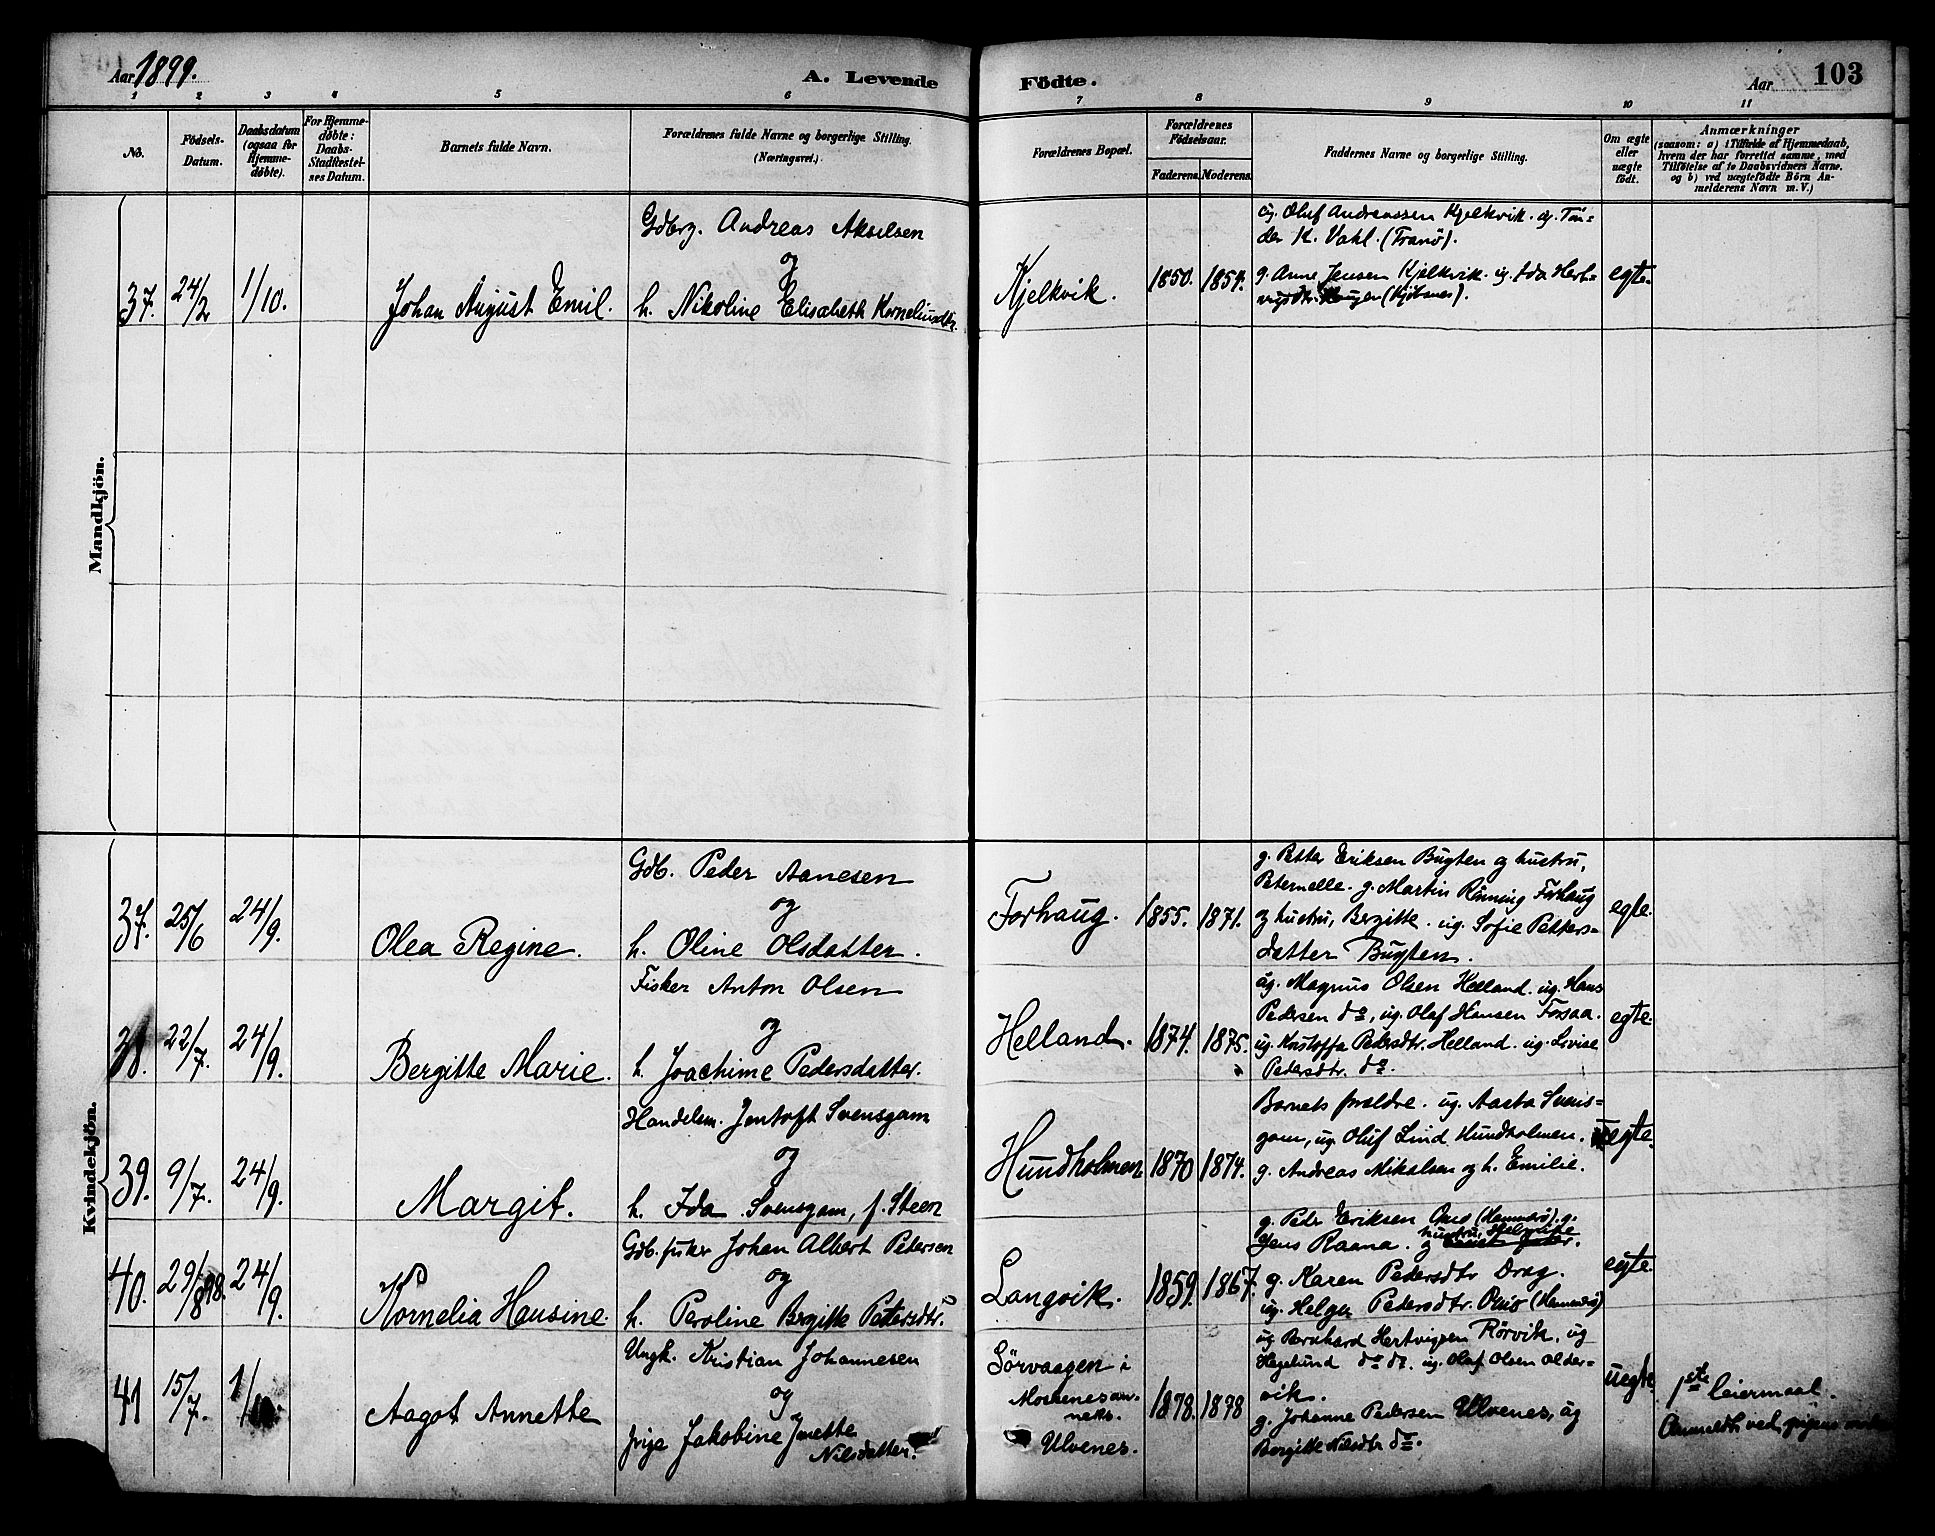 Aar 1899.
A. Levende Födte.
Aar 103
1 2 3 4 5 6 7 8 9 10 11
No.
Födsels-Datum.
Daabsdatum (ogsaa for Hjemme-döbte).
For Hjemme-döbte: Daabs-Stadfæstel-ses Datum.
Barnets fulde Navn.
Forældrenes fulde Navne og borgerlige Stilling.
(Næringsvei.)
Forældrenes Bopæl.
Forældrenes Födselsaar.
Faderens. Moderens.
Faddernes Navne og borgerlige Stilling.
Om ægte eller uægte födt.
Anmærkninger
(saasom: a) i Tilfælde af Hjemmedaab,
hvem der har forrettet samme, med
Tilföielse af to Daabsvidners Navne,
og b) ved uægtefödte Börn An-
melderens Navn m.V.)
Mandkjön.
37. 24/2 1/10. Johan August Emil.
Gdbrg. Andreas Akselsen
og
h. Nikoline Elisabeth Korneliusdtr.
Kjelkvik. 1850. 1859.
ug. Oluf Andreassen Kjelkvik. g. Tön=
der K. Vahl. (Tranö).
g. Anne Jensen Kjelkvik. ug. Ida Hert=
egte.
Kvindekjön.
37. 25/6 24/9. Olea Regine.
Gdb. Peder Aanesen
og
h. Oline Olsdatter.
Forhaug. 1855. 1871.
g. Petter Eriksen Bugten og hustru,
Peternelle. g. Martin Rönning Forhaug
og hustru, Bergitte. ug. Sofie Petters=
datter Bugten.
egte.
38. 22/7. 24/9. Bergitte Marie.
Fisker Anton Olsen
og
h. Joachime Pedersdatter.
Helland. 1874. 1875.
ug. Magnus Olsen Helland. ug. Hans
Pedersen do, ug. Olaf Hansen Forsaa.
ug. Kristoffa Pedersdtr. Helland. ug. Lovise
Pedersdtr. do.
egte.
39. 9/7. 24/9. Margit.
Handelsm. Jentoft Svensgam
og
h. Ida Svensgam, f. Steen
Hundholmen 1870 1874.
Barnets forældre. ug. Aasta Svens=
gam, ug. Oluf Lind Hundholmen.
g. Andreas Mikalsen og h. Emilie.
egte.
40. 29/8 98. 24/9. Kornelia Hansine.
Gdb. fisker Johan Albert Petersen
og
h. Peroline Bergitte Petersdtr.
Langvik. 1859. 1867.
g. Peder Eriksen (Hammerö). g.
Jens Raana. og hustru,
g. Karen Pedersdtr Drag.
ug. Helga Pedersdtr. (Hammerö)
egte.
41 15/7. 1/10. Aagot Annette
Ungk. Kristian Johannesen
og
pige Jakobine Jenette
Nilsdatter.
Sörvaagen i
Moskenes an-
neks.
Ulvenes.
1878. 1878
ug Bernhard Hertvigsen Rörvik, ug
Hagelund do do. ug. Olaf Olsen Older=
vik.
g. Johanne Pedersen Ulvenes, ug
Bergitte Nilsdtr do.
uegte
1ste leiermaal.
Anmeldt ved pigens